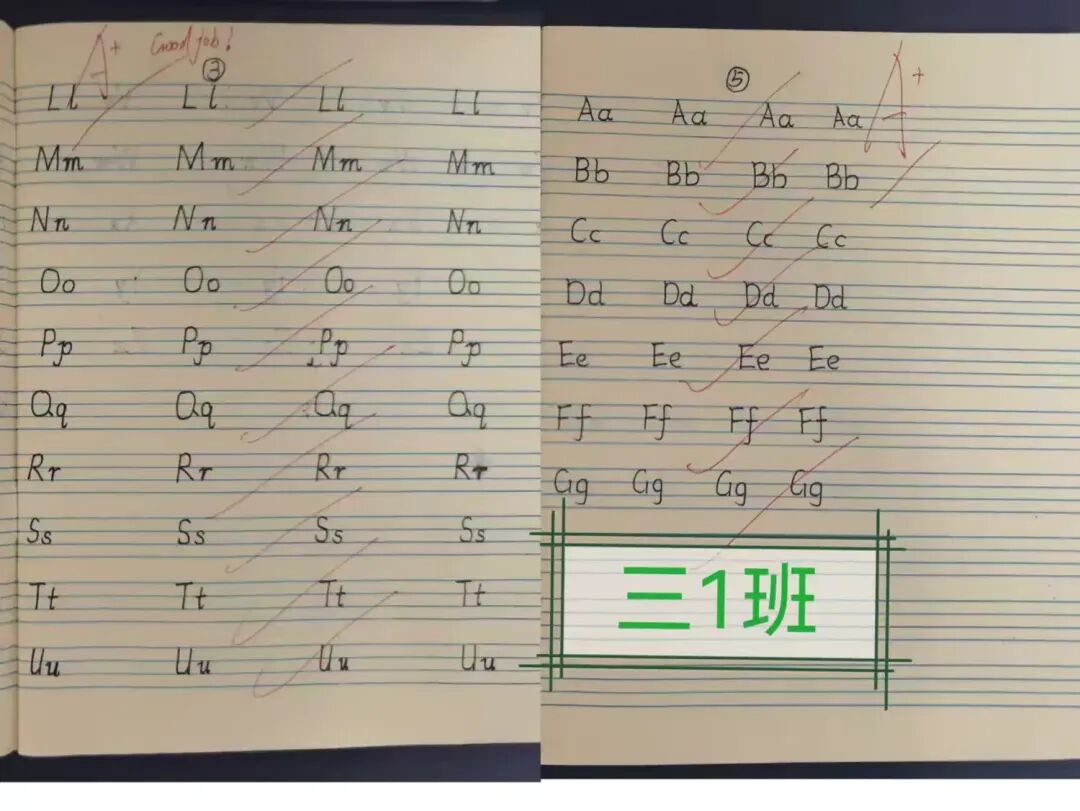 A+ Good job!
③
Ll Ll Ll Ll
Mm Mm Mm Mm
Nn Nn Nn Nn
Oo Oo Oo Oo
Pp Pp Pp Pp
Qq Qq Qq Qq
Rr Rr Rr Rr
Ss Ss Ss Ss
Tt Tt Tt Tt
Uu Uu Uu Uu
⑤
A+
Aa Aa Aa Aa
Bb Bb Bb Bb
Cc Cc Cc Cc
Dd Dd Dd Dd
Ee Ee Ee Ee
Ff Ff Ff Ff
Gg Gg Gg Gg
三1班